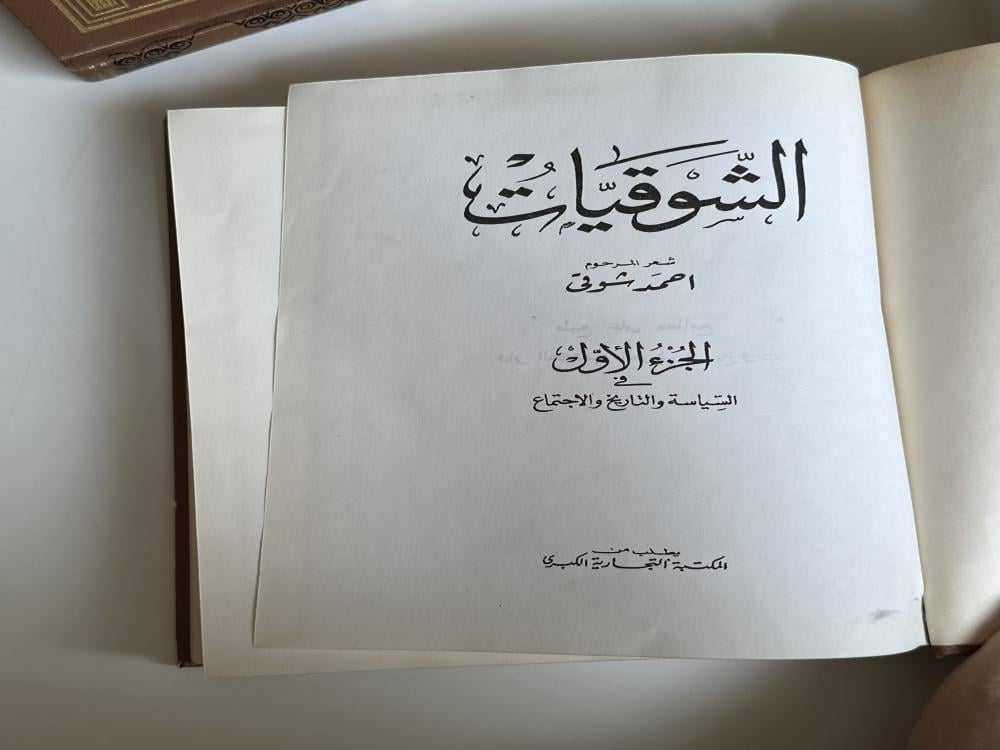 الشَّوقيَّاتُ
شعر المرحوم
احمَد شوقي
الجُزْءُ الأوّلْ
في
السِّياسة والتاريخ والاجتماع
يطلب من
المكتبة التجارية الكبرى